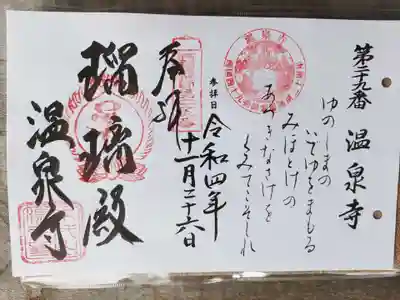 第二十九番 温泉寺
ゆのしまの
いでゆをまもる
みほとけの
あつきなさけを
くみてこそしれ
参拝日 令和四年
十一月二十六日
奉拝
瑠璃殿
温泉寺